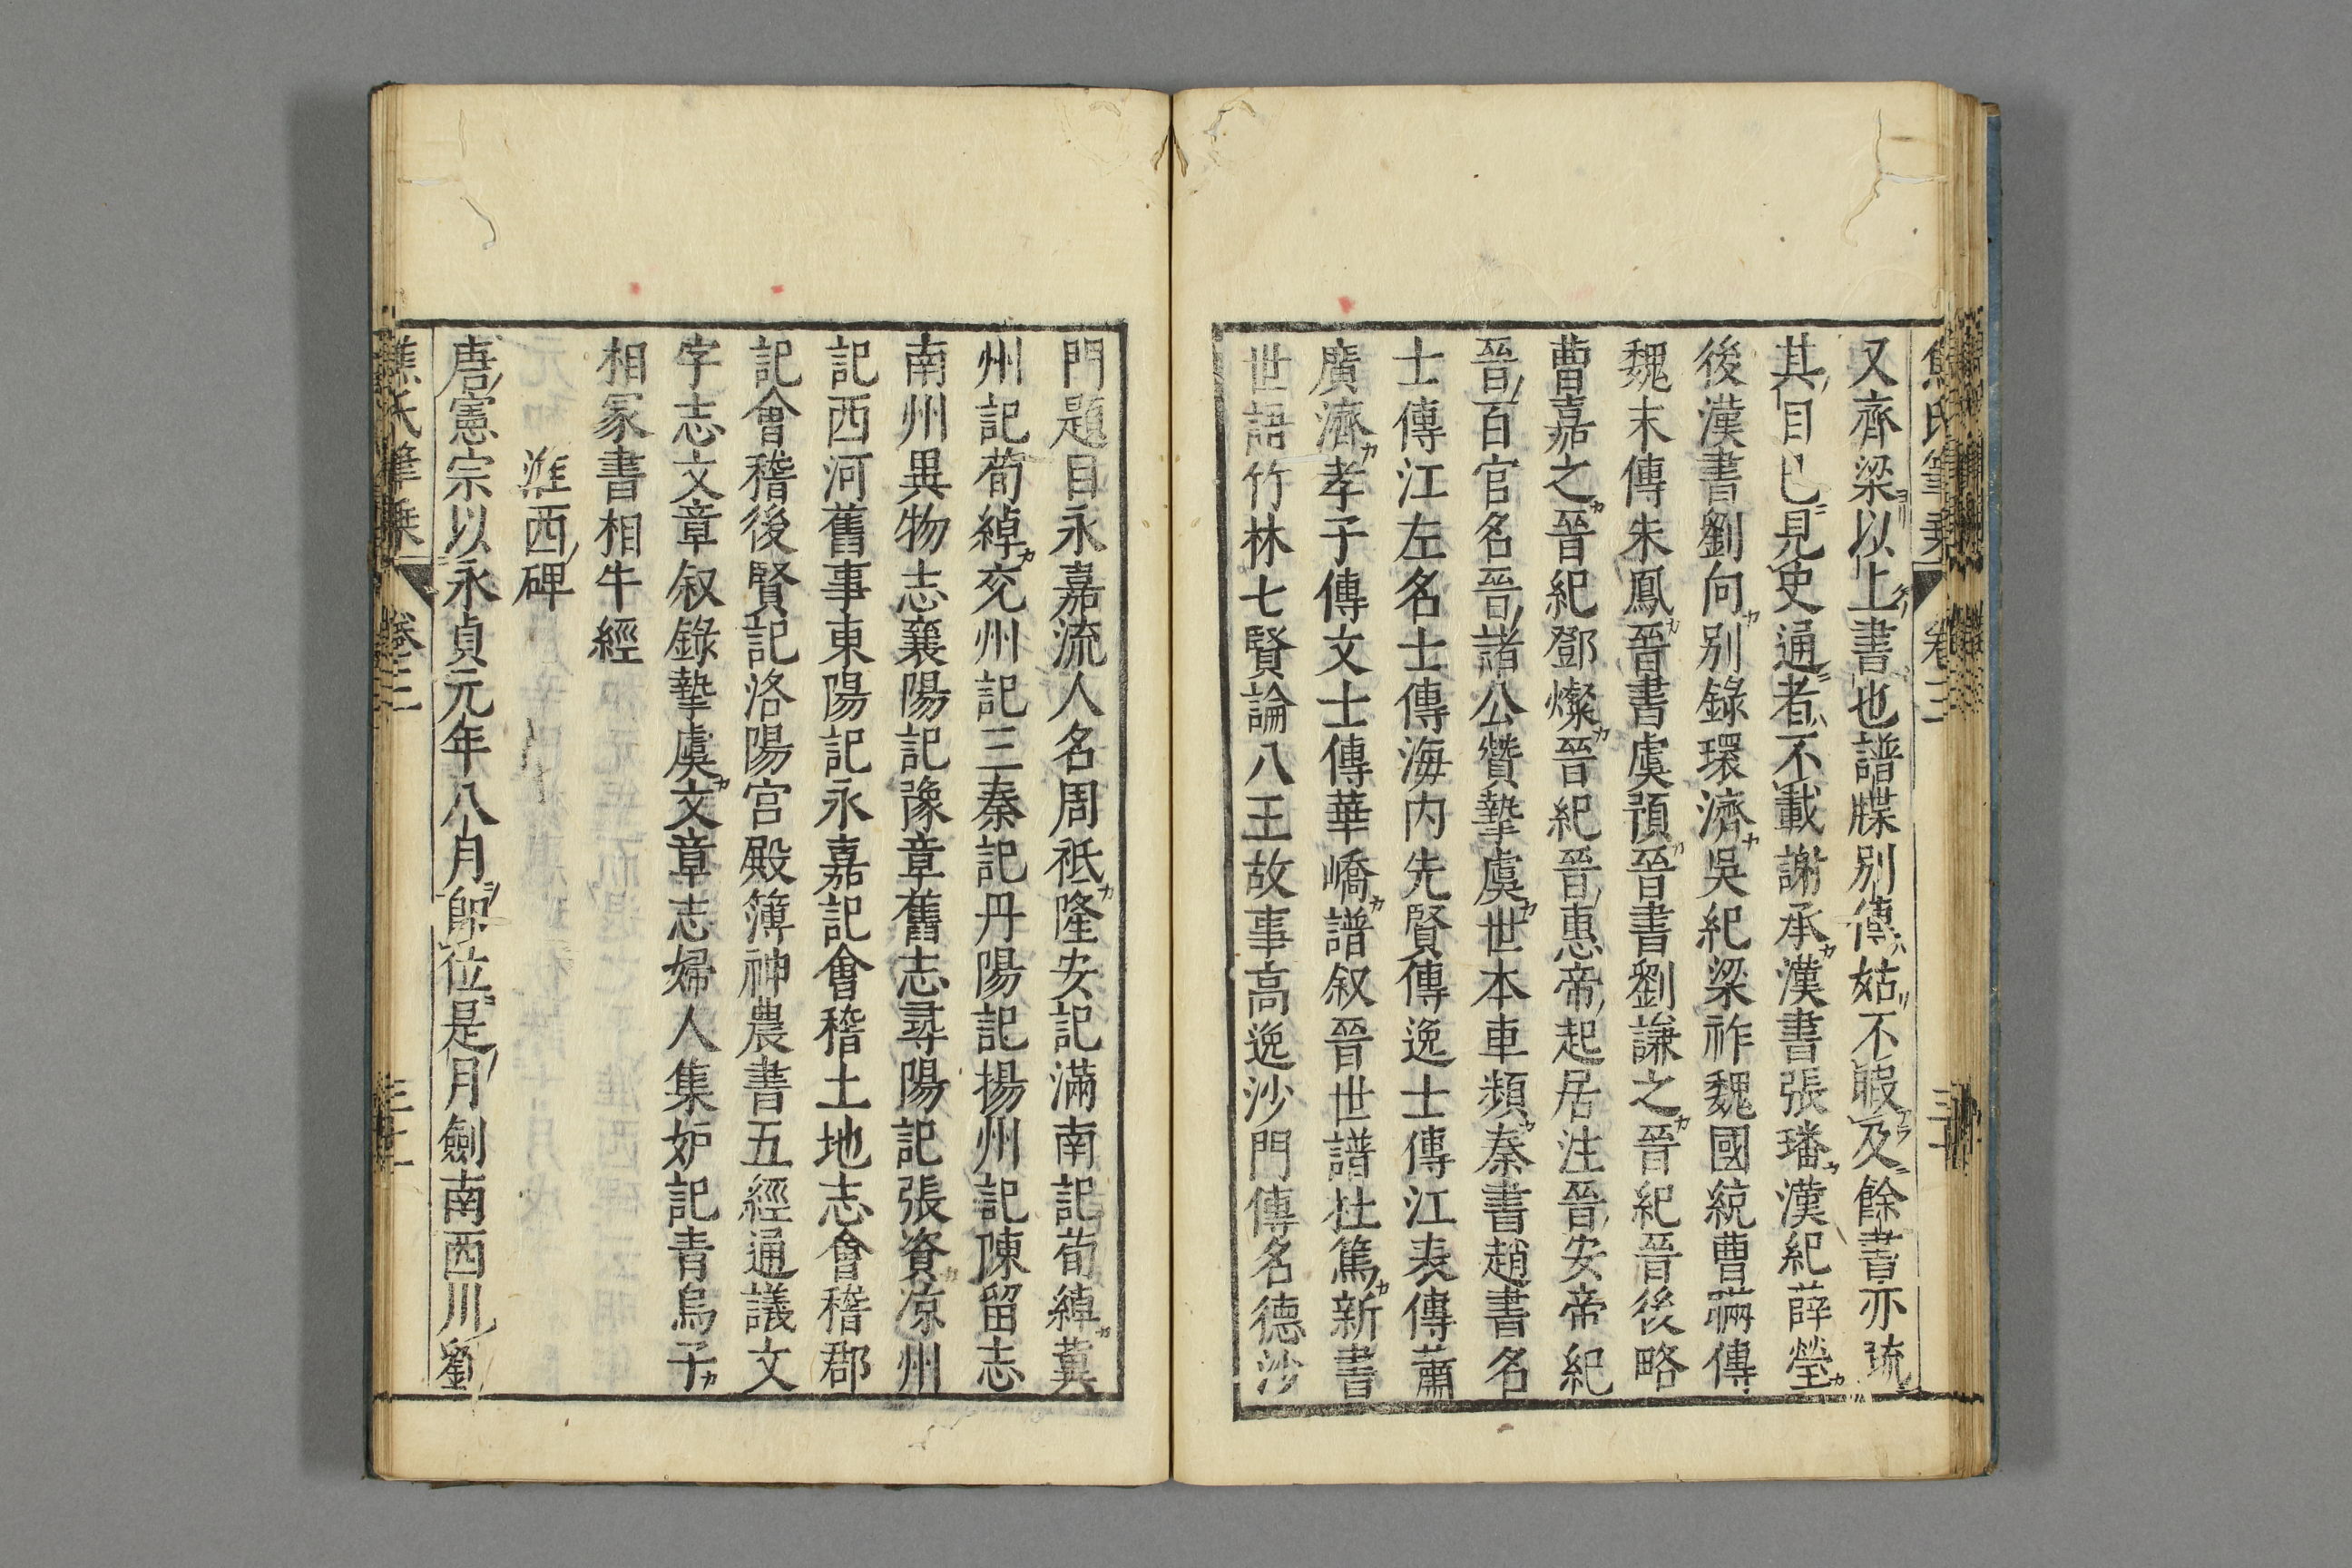 焦氏筆乗 卷三
又齊梁以上書也譜牒別傳姑不暇及餘書亦疏
其目已見史通者不載謝承漢書張璠漢紀薛瑩
後漢書劉向別錄環濟吳紀梁祚魏國統曹瞞傳
魏末傳朱鳳晉書虞預晉書劉謙之晉紀晉後略
曹嘉之晉紀鄧燦晉紀晉惠帝起居注晉安帝紀
晉百官名晉諸公贊摯虞世本車頻秦書趙書名
士傳江左名士傳海內先賢傳逸士傳江表傳蕭
廣濟孝子傳文士傳華嶠譜叙晉世譜杜篤新書
世語竹林七賢論八王故事高逸沙門傳名德沙
門題目永嘉流人名周祗隆安記滿南記荀綽冀
州記荀綽兖州記三秦記丹陽記揚州記陳留志
南州異物志襄陽記豫章舊志尋陽記張資凉州
記西河舊事東陽記永嘉記會稽土地志會稽郡
記會稽後賢記洛陽宮殿簿神農書五經通議文
字志文章叙錄摯虞文章志婦人集妒記青烏子
相冢書相牛經
淮西碑
唐憲宗以永貞元年八月即位是月劍南西川劉
焦氏筆乗 卷三